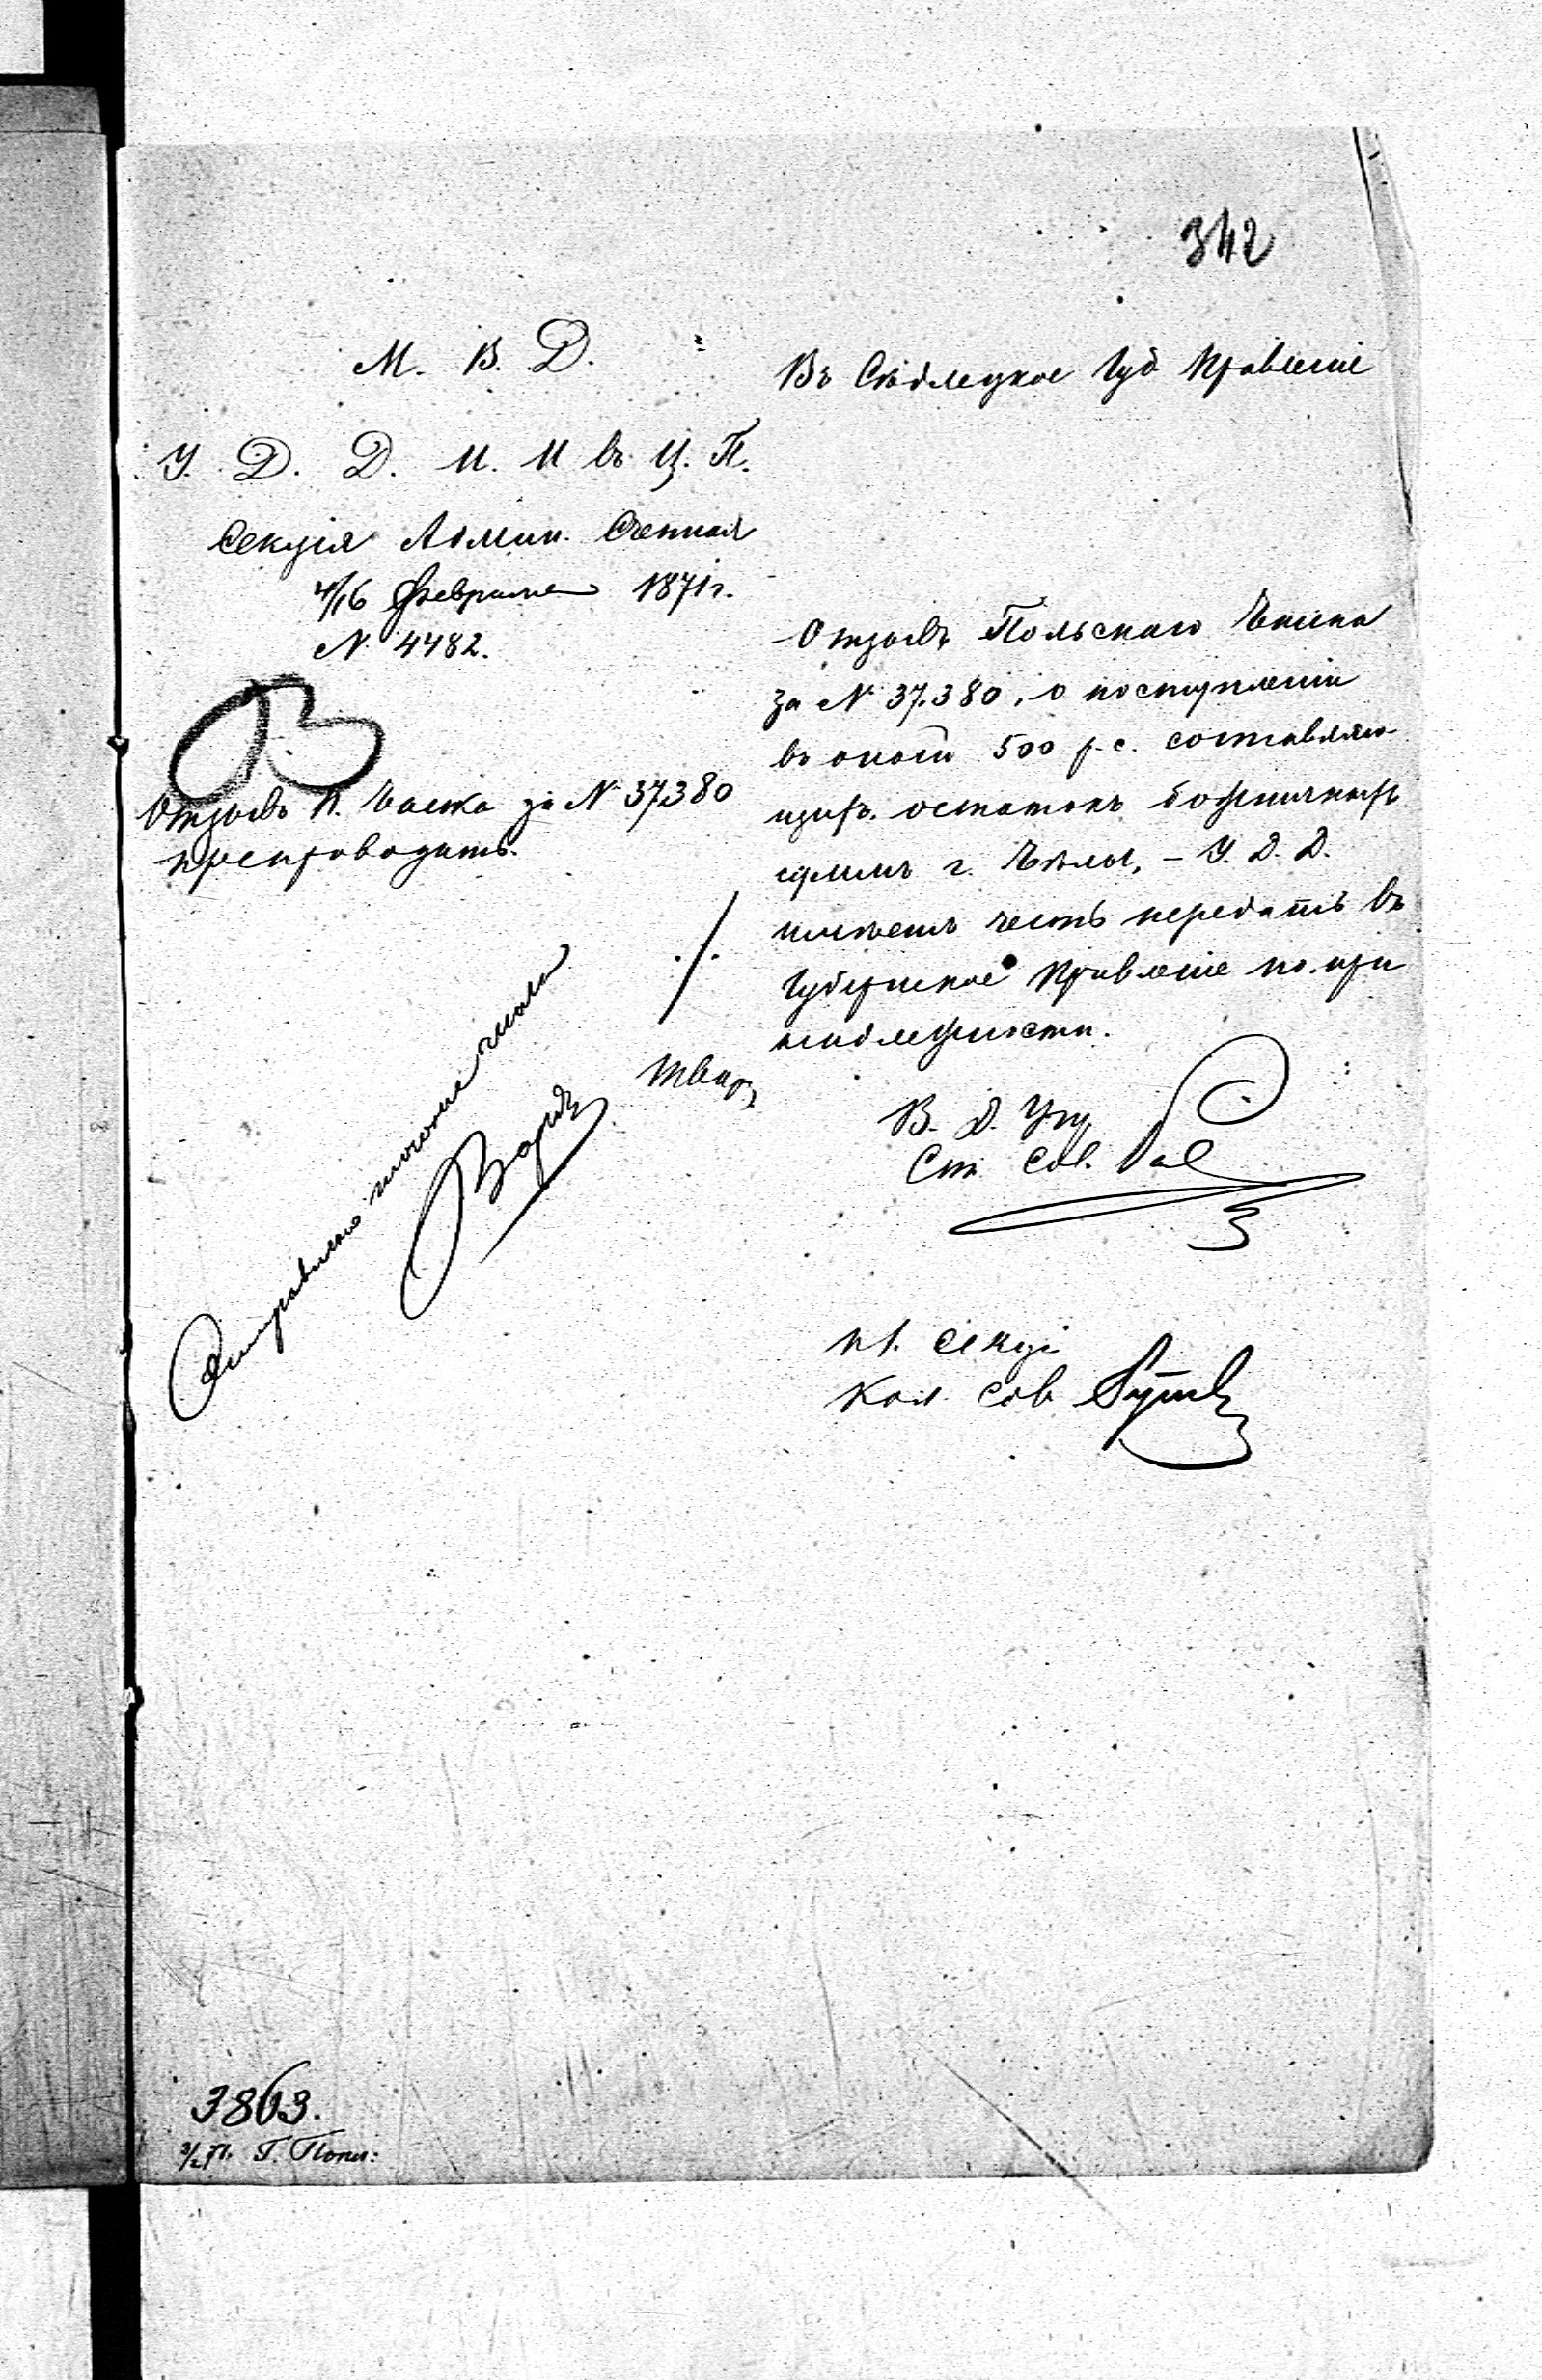 342
М. В. Д.
У. Д. Д. И. И въ Ц. П.
Секція Админ. Счетная
4/16 Февраля 1871 г.
№ 4482.
Отзывъ П. Банка за № 37380
препроводить.
Отправлено того же числа
Въ Сѣдлецкое Губ Правленіе
Отзывъ Польскаго Банка
за № 37.380, о поступленіи
въ оный 500 р. с. составляю-
щихъ остатокъ божничныхъ
суммъ г. Бѣлы, – У. Д. Д.
имѣетъ честь передать въ
Губернское Правленіе по при
надлежности.
В. Д. Упр
Ст. Сов.
Н. Секці
Кол. Сов
3863.